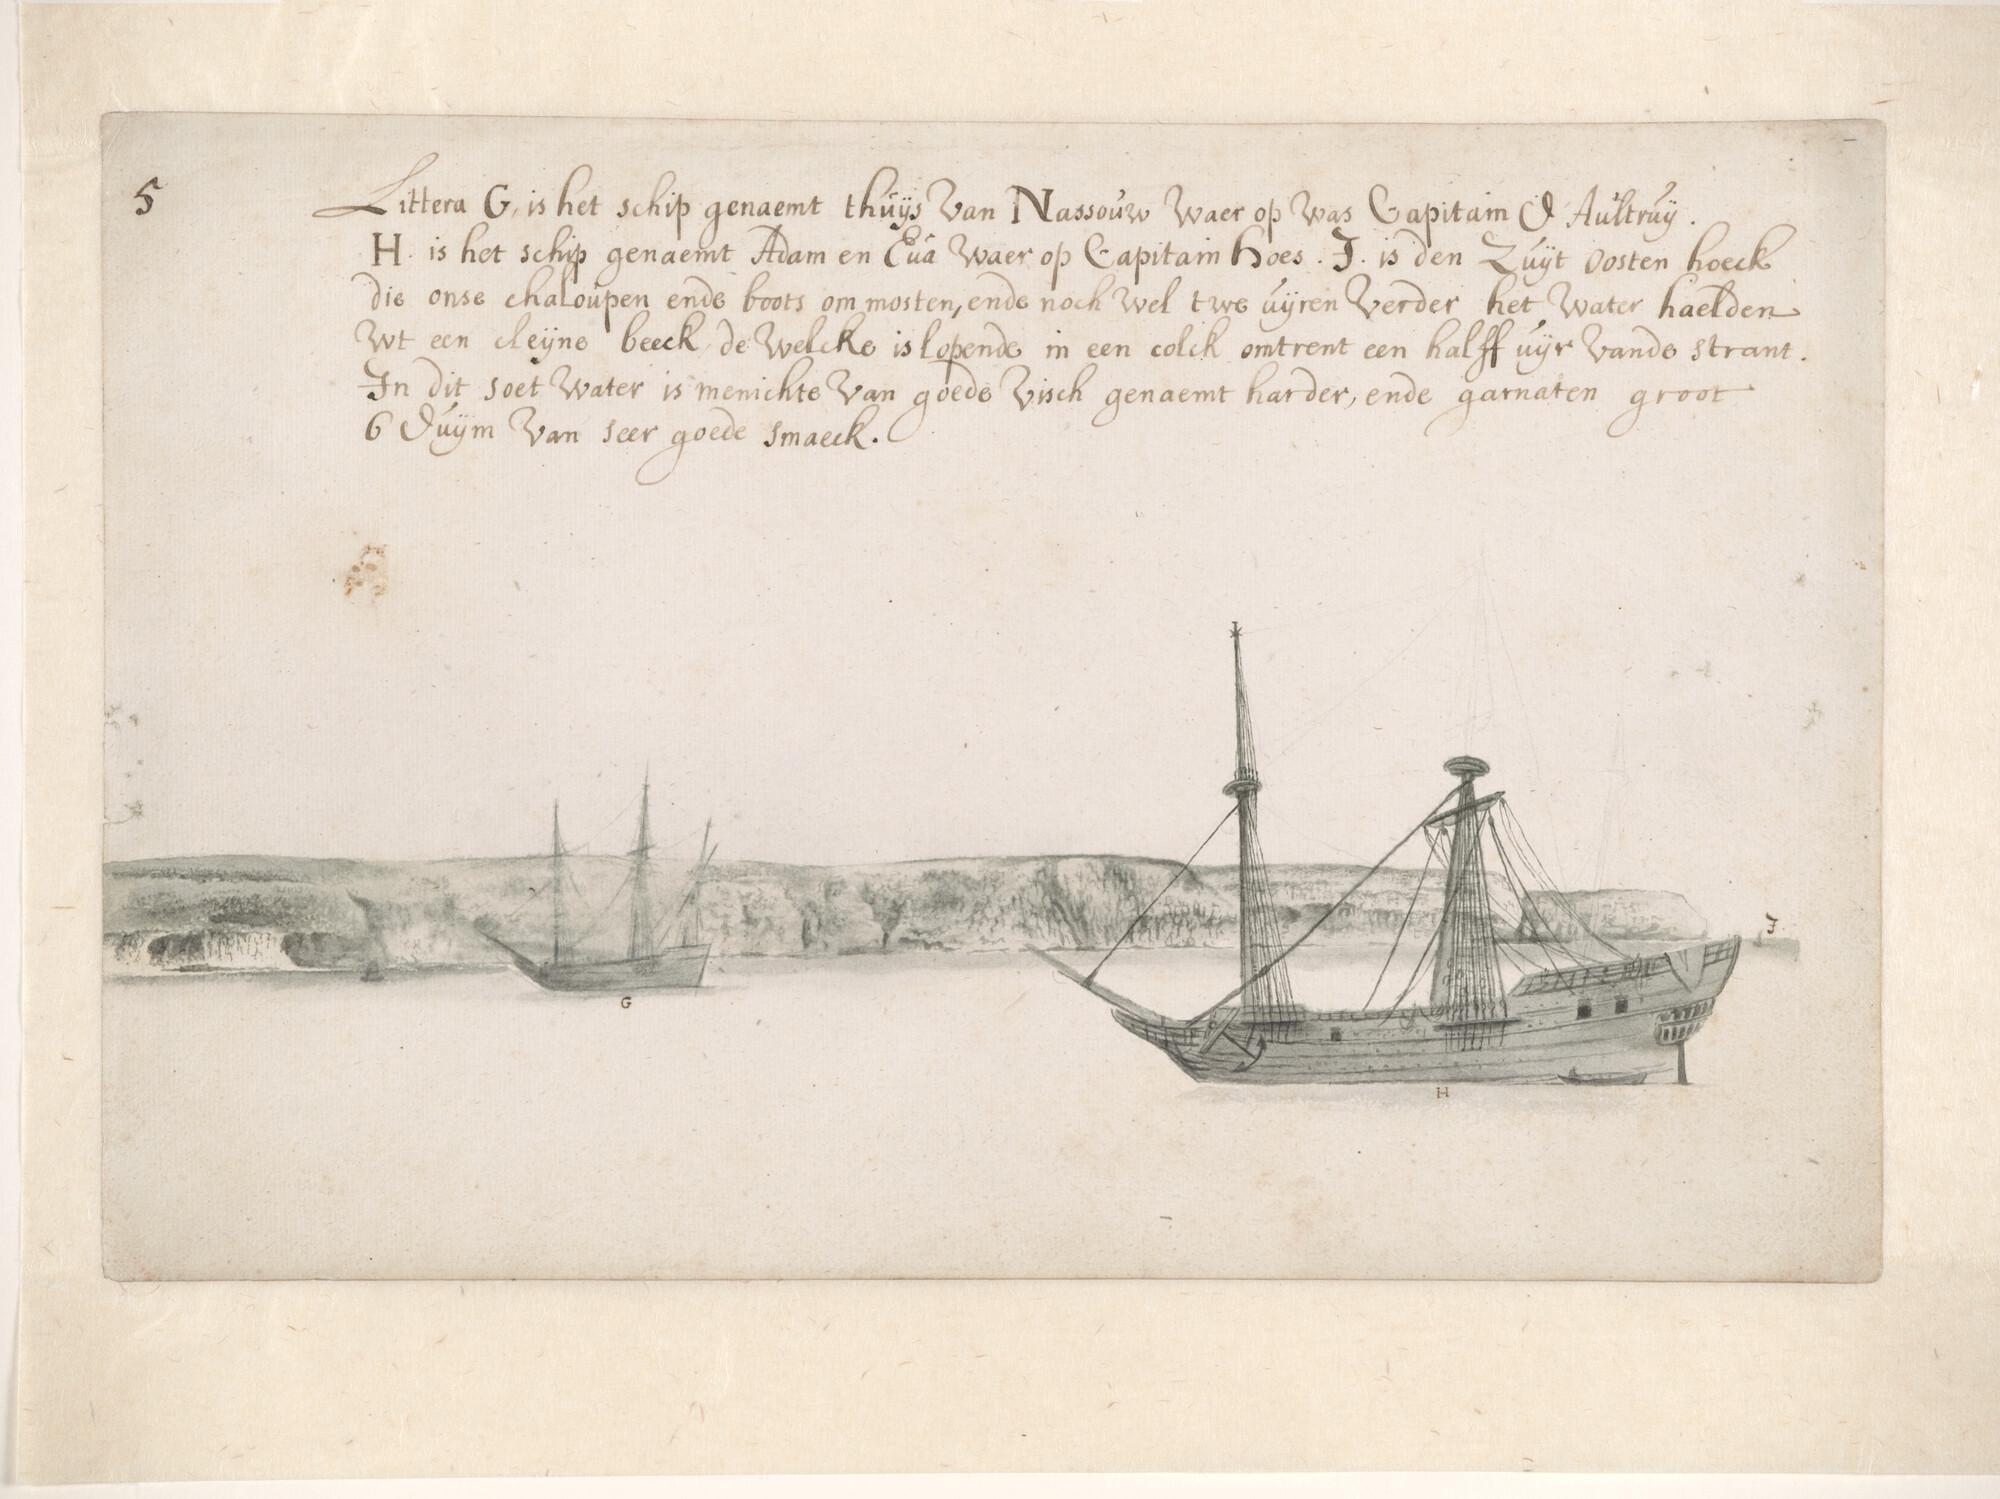 5
Littera G, is het schip genaemt thuys van Nassouw waer op was Capitain d'Aultruy.
H. is het schip genaemt Adam en Eua waer op Capitain hoes. J. is den Zuyt oosten hoeck
die onse chaloupen ende boots om mosten, ende noch wel twe uyren verder het water haelden
wt een cleyne beeck, de welcke is lopende in een colck omtrent een halff uyr vande strant.
In dit soet water is menichte van goede visch genaemt harder, ende garnaten groot
6 duym van seer goede smaeck.
J.
G
H